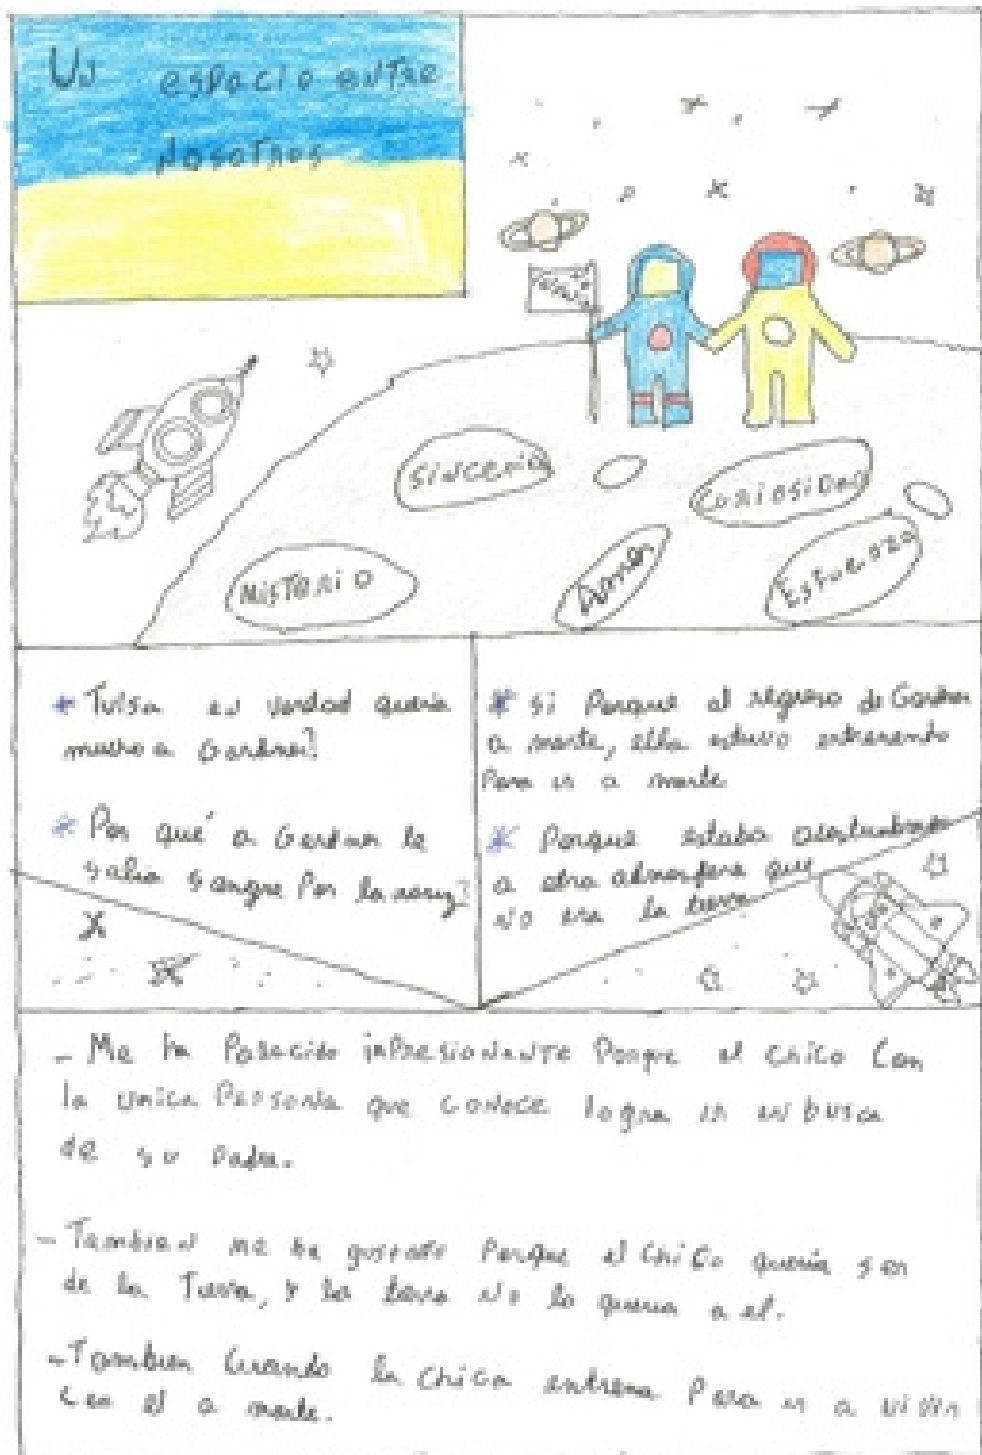 Un espacio entre
Nosotros
Sincerida
Curiosidad
Misterio
Amor
Esfuerzo
* Tulsa en verdad quería
mucho a Gardner?
* Por qué a Gardner le
salia sangre Por la nariz?
* Si Porque al regreso de Gardner
a marte, ella estuvo entrenando
Para ir a marte
* Porque estaba acostumbrado
a otra atmosfera que
No era la tierra
- Me ha Parecido inPresionante Porque el chico Con
la unica Persona que conoce logra ir en busca
de su Padre.
- Tambien me ha gustado Porque el chico quería ser
de la Tierra, y la tierra No lo queria a el.
- Tambien Cuando la chica entrena Para ir a vivir
con el a marte.